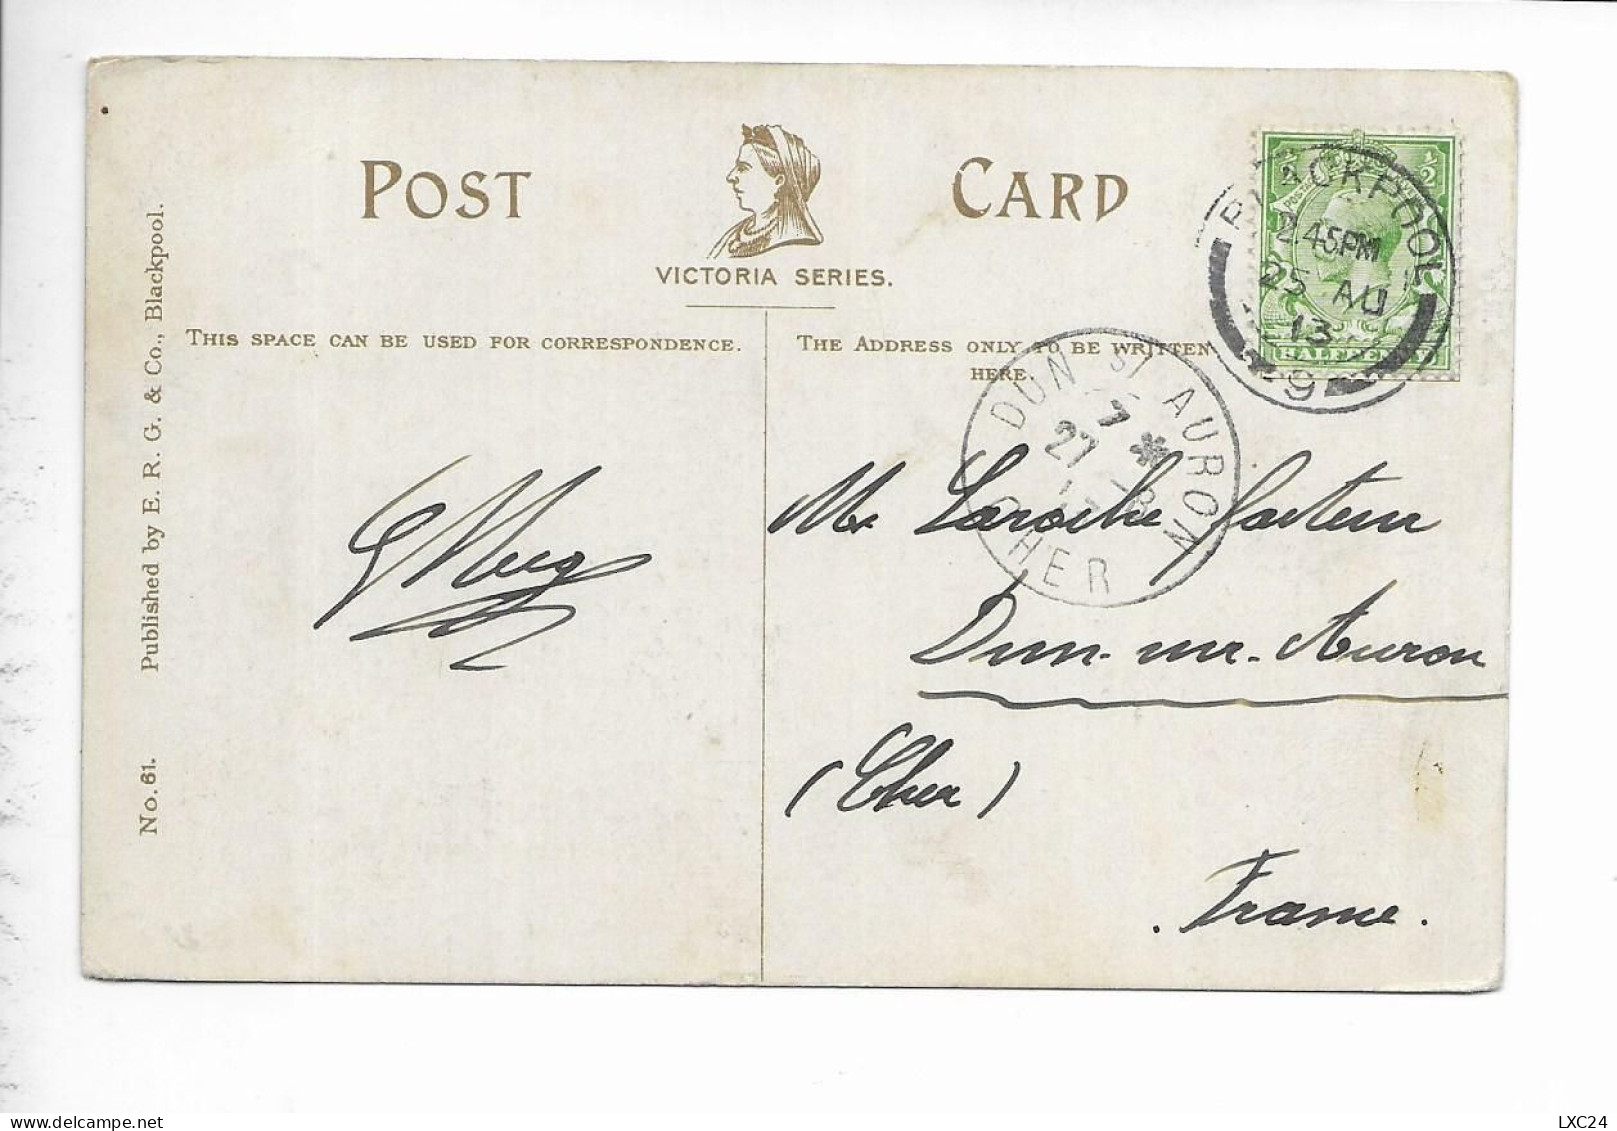 POST CARD
VICTORIA SERIES.
THIS SPACE CAN BE USED FOR CORRESPONDENCE.
THE ADDRESS ONLY TO BE WRITTEN
HERE.
No. 61. Published by E. R. G. & Co., Blackpool.
BLACKPOOL
2.45PM
25 AU
13
9
½ ½
HALFPENNY
DUN S AURON
7 *
27
CHER
Mr Laroche facteur
Dun-sur-Auron
(Cher)
France.
LXC24